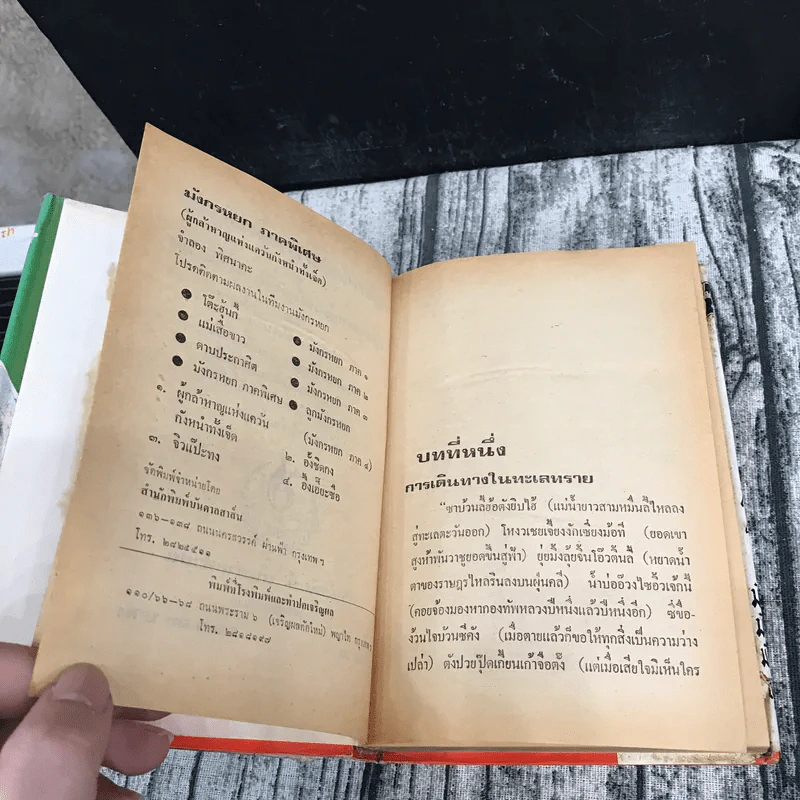 มังกรหยก ภาคพิเศษ
(ผู้กล้าหาญแห่งแคว้นกังหนำทั้งเจ็ด)
จำลอง พิศนาคะ
โปรดติดตามผลงานในทีมงานมังกรหยก
● โต๊ะฮุ้นกี้
● แม่เสือขาว
● ดาบประกาศิต
● มังกรหยก ภาคพิเศษ
● มังกรหยก ภาค ๑
● มังกรหยก ภาค ๒
● มังกรหยก ภาค ๓
● ลูกมังกรหยก
(มังกรหยก ภาค ๔)
๑. ผู้กล้าหาญแห่งแคว้น
กังหนำทั้งเจ็ด
๒. อั้งชิดกง
๓. จิวแป๊ะทง
๔. อึ้งเอี๊ยะซือ
จัดพิมพ์จำหน่ายโดย
สำนักพิมพ์บันดาลสาส์น
๑๓๖–๑๓๘ ถนนนครสวรรค์ ผ่านฟ้า กรุงเทพฯ
โทร. ๒๘๒๕๕๑๑
พิมพ์ที่โรงพิมพ์และทำปกเจริญผล
๑๑๐/๖๖–๖๘ ถนนพระราม ๖ (เจริญผลตัดใหม่) พญาไท กรุงเทพฯ
โทร. ๒๘๑๘๑๙๗
บทที่หนึ่ง
การเดินทางในทะเลทราย
“ซาบ้วนลี้ฮ้อตังยิบไฮ้ (แม่น้ำยาวสามหมื่นลี้ไหลลง
สู่ทะเลตะวันออก) โหงวเชยเจี้ยงงักเซี่ยงม้อที (ยอดเขา
สูงห้าพันวาชูยอดขึ้นสู่ฟ้า) ยุ่ยมั้งลุ้ยจิ้นโอ๊วติ้นลี้ (หยาดน้ำ
ตาของราษฎรไหลรินลงบนฝุ่นคลี) น้ำบ่ออ๊วงไซอิ้วเจ๊กนี้
(คอยจ้องมองหากองทัพหลวงปีหนึ่งแล้วปีหนึ่งอีก) ซี่ขื่อ-
ง้วนใจบ้วนซี่คัง (เมื่อตายแล้วก็ขอให้ทุกสิ่งเป็นความว่าง
เปล่า) ตังปวยปุ๊ดเกี้ยนเก้าจื้อตั๊ง (แต่เมื่อเสียใจมิเห็นใคร